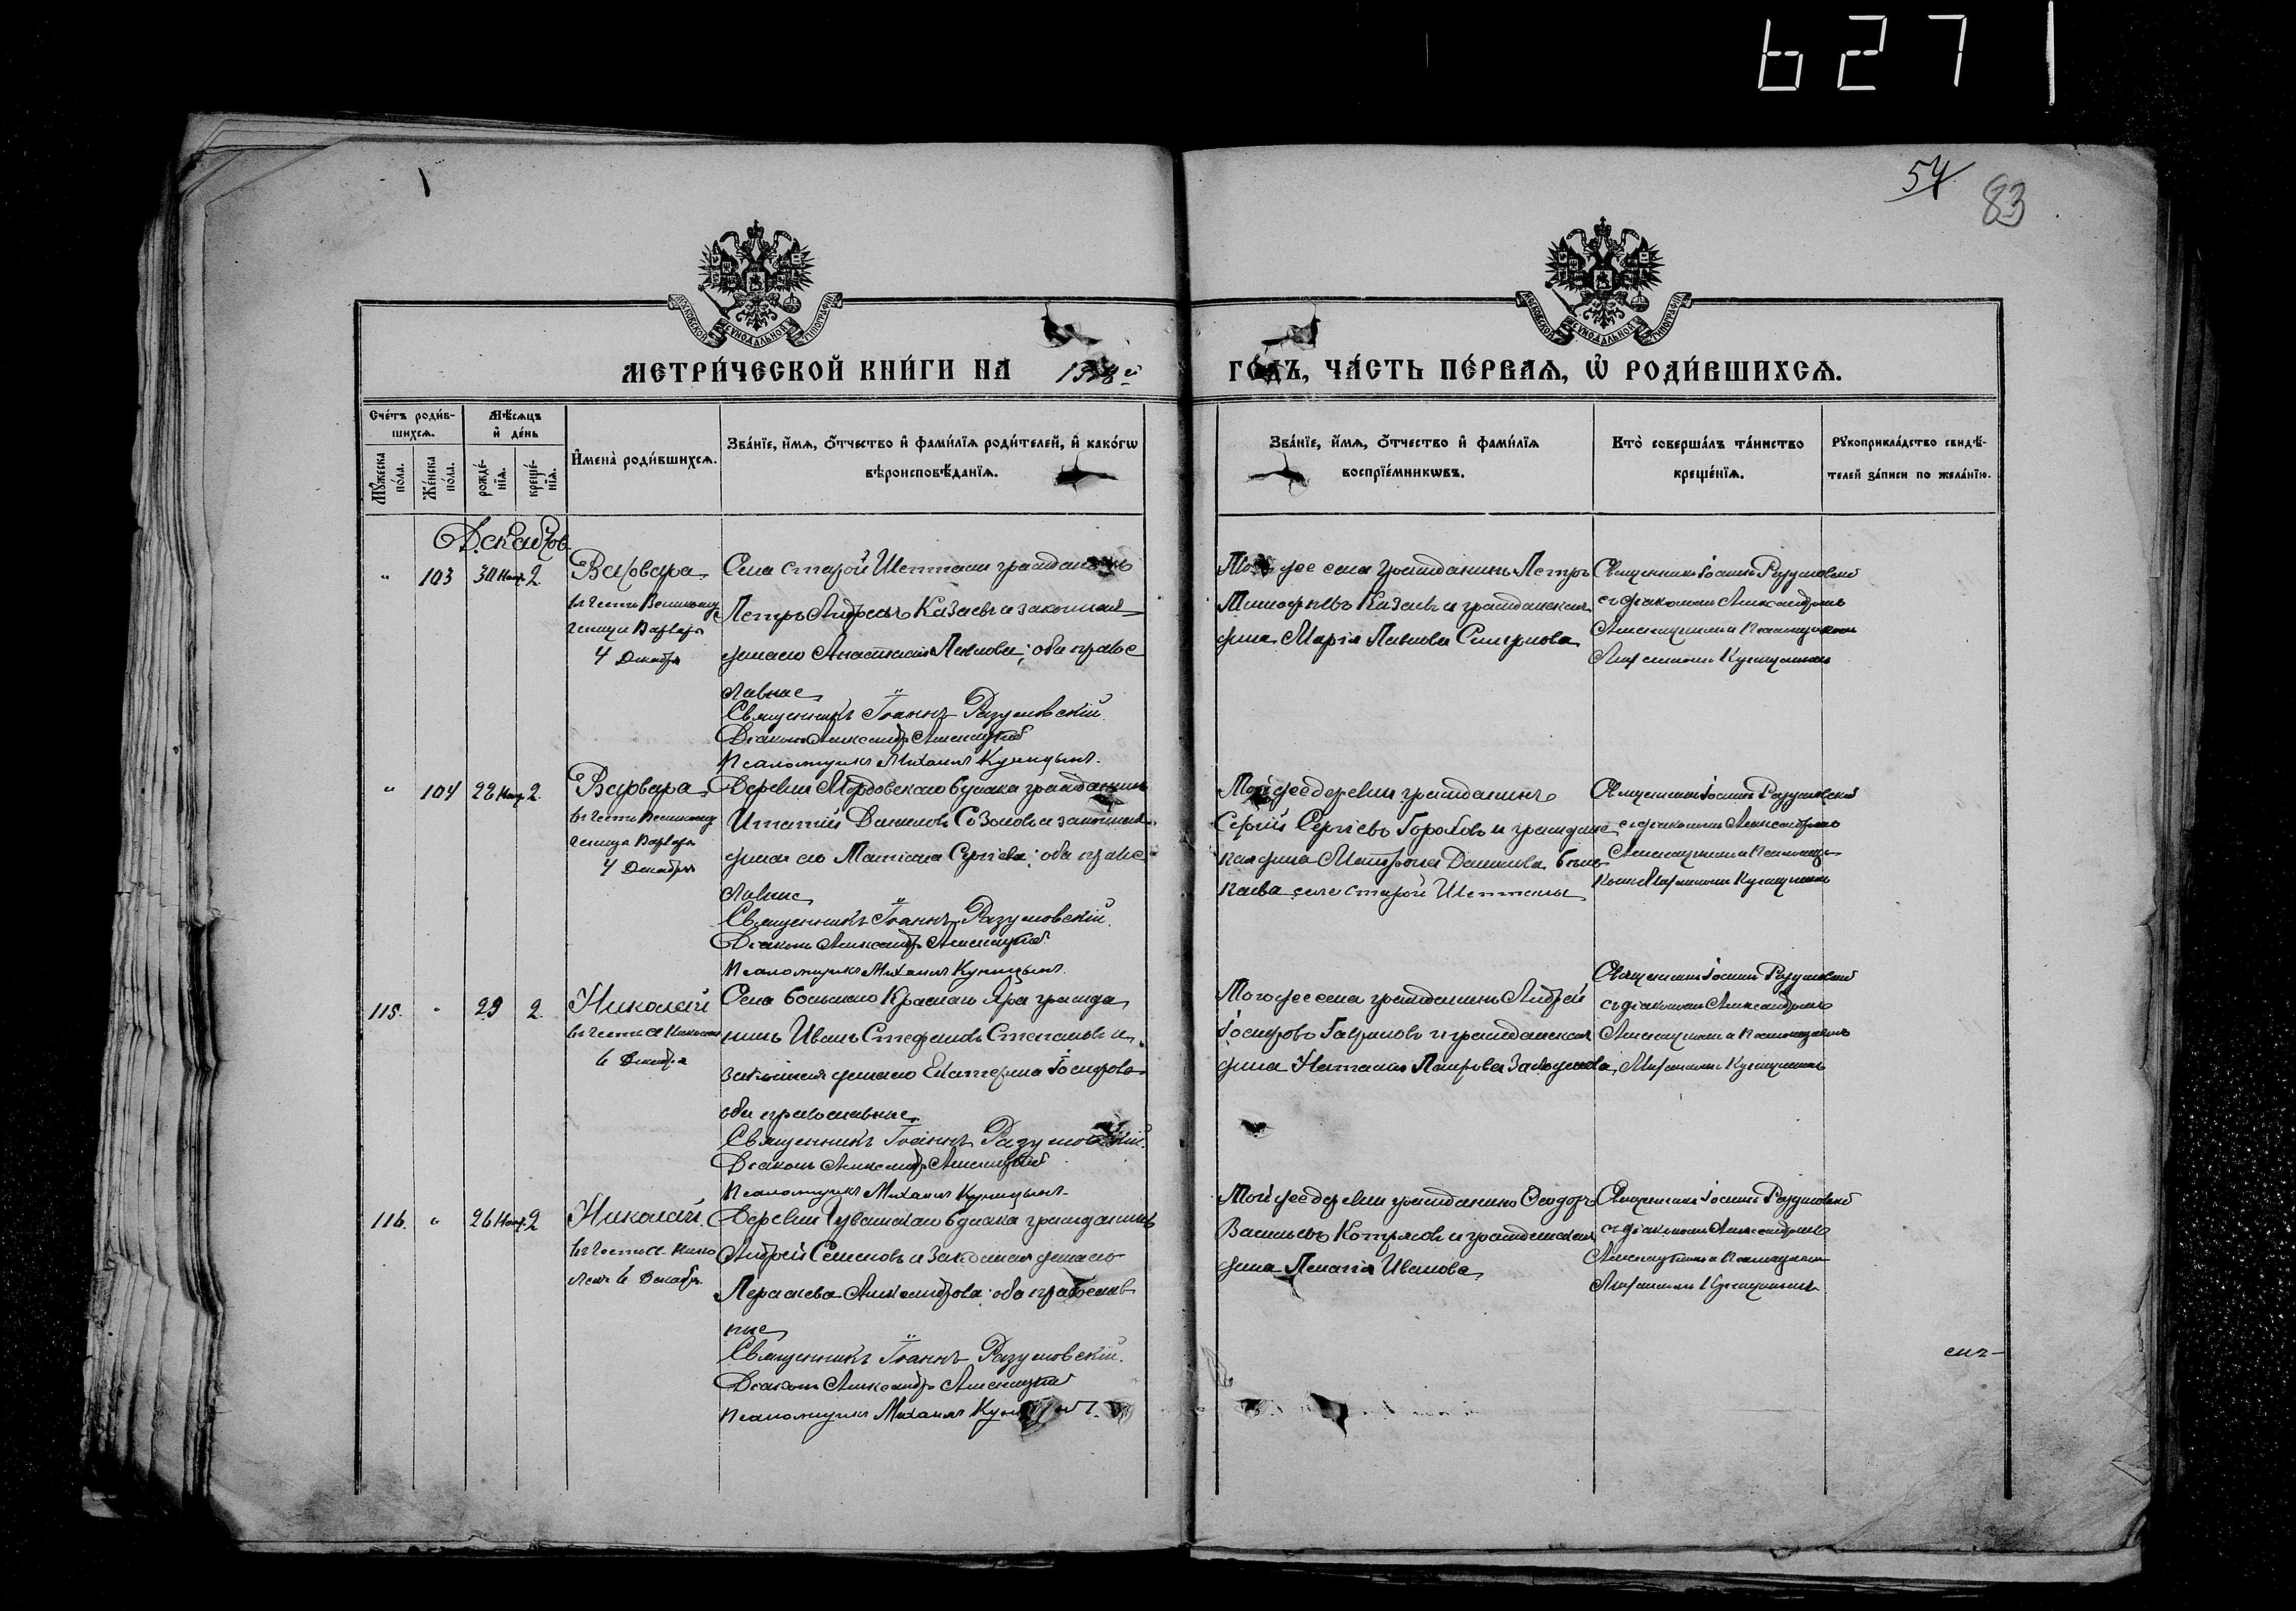 6271
54
83
МОСКОВСКОЙ СѴНОДАЛЬНОЙ ТИПОГРАФІИ
МОСКОВСКОЙ СѴНОДАЛЬНОЙ ТИПОГРАФІИ
МЕТРИ́ЧЕСКОЙ КНИ́ГИ НА 1918й
ГО́ДЪ, ЧА́СТЬ ПЕ́РВАѦ, Ѡ҆ РОДИ́ВШИХСѦ.
Сче́тъ роди́в-
шихсѧ.
Мѣ́сѧцъ
и҆ де́нь
Мꙋ́жеска
по́ла.
Же́нска
по́ла.
рожде́-
нїѧ.
креще́-
нїѧ.
И҆мена̀ роди́вшихсѧ.
Зва́нїе, и҆́мѧ, ѻ҆́тчество и҆ фами́лїѧ роди́телей, и҆ како́гѡ
вѣроисповѣ́данїѧ.
Зва́нїе, и҆́мѧ, ѻ҆́тчество и҆ фами́лїѧ
воспрїе́мникѡвъ.
Кто̀ соверша́лъ та́инство
креще́нїѧ.
Рꙋкоприкла́дство свидѣ́-
телей за́писи по жела́нїю.
Декабрь
" 103 30 Нояб. 2
Варвара
въ честь Великому
ченицы Варвары
4 Декабря
Села Старой Шентали гражданинъ
Петръ Андреевъ Казаевъ и законная
жена его Анастасія Павлова; оба право
славные
Священникъ Іоаннъ Разумовскій.
Діаконъ Александръ
Псаломщикъ Михаилъ Куницынъ.
Того же села гражданинъ Петръ
Казаевъ и гражданская
жена Марія Павлова Смирнова
Священникъ Іоаннъ Разумовскій
съ діакономъ Александромъ
и псаломщикомъ
Михаиломъ Куницынымъ
" 104 28 Нояб. 2.
Варвара
въ честь Великому
ченицы Варвары
4 Декабря
Деревни Мордовскаго Будака гражданинъ
Игнатій Даниловъ Созоновъ и законная
жена его Татіана Сергіева; оба право
славные
Священникъ Іоаннъ Разумовскій.
Діаконъ Александръ
Псаломщикъ Михаилъ Куницынъ.
Той же деревни гражданинъ
Сергій Сергіевъ Гороховъ и граждан
ская жена Матрона Данилова
села Старой Шенталы
Священникъ Іоаннъ Разумовскій
съ діакономъ Александромъ
и псаломщи
комъ Михаиломъ Куницынымъ
115. " 29 2.
Николай
въ честь св. Николая
6 Декабря
Села Большаго Краснаго Яра гражда
нинъ Иванъ Стефановъ Степановъ и
законная жена его Екатерина Іосифова
оба православные
Священникъ Іоаннъ Разумовскій.
Діаконъ Александръ
Псаломщикъ Михаилъ Куницынъ.
Того же села гражданинъ Андрей
Іосифовъ Гавриловъ и гражданская
жена Наталія
Священникъ Іоаннъ Разумовскій
съ діакономъ Александромъ
и псаломщикомъ
Михаиломъ Куницынымъ
116. " 26 Нояб. 2
Николай
въ честь св. Нико
лая 6 Декабря
Деревни Чувашскаго Будака гражданинъ
Андрей Семеновъ и законная жена его
Параскева Александрова; оба православ
ные
Священникъ Іоаннъ Разумовскій.
Діаконъ Александръ
Псаломщикъ Михаилъ Куницынъ.
Той же деревни гражданинъ Ѳеодоръ
Васильевъ и гражданская
жена Пелагія Иванова
Священникъ Іоаннъ Разумовскій
съ діакономъ Александромъ
и псаломщикомъ
Михаиломъ Куницынымъ